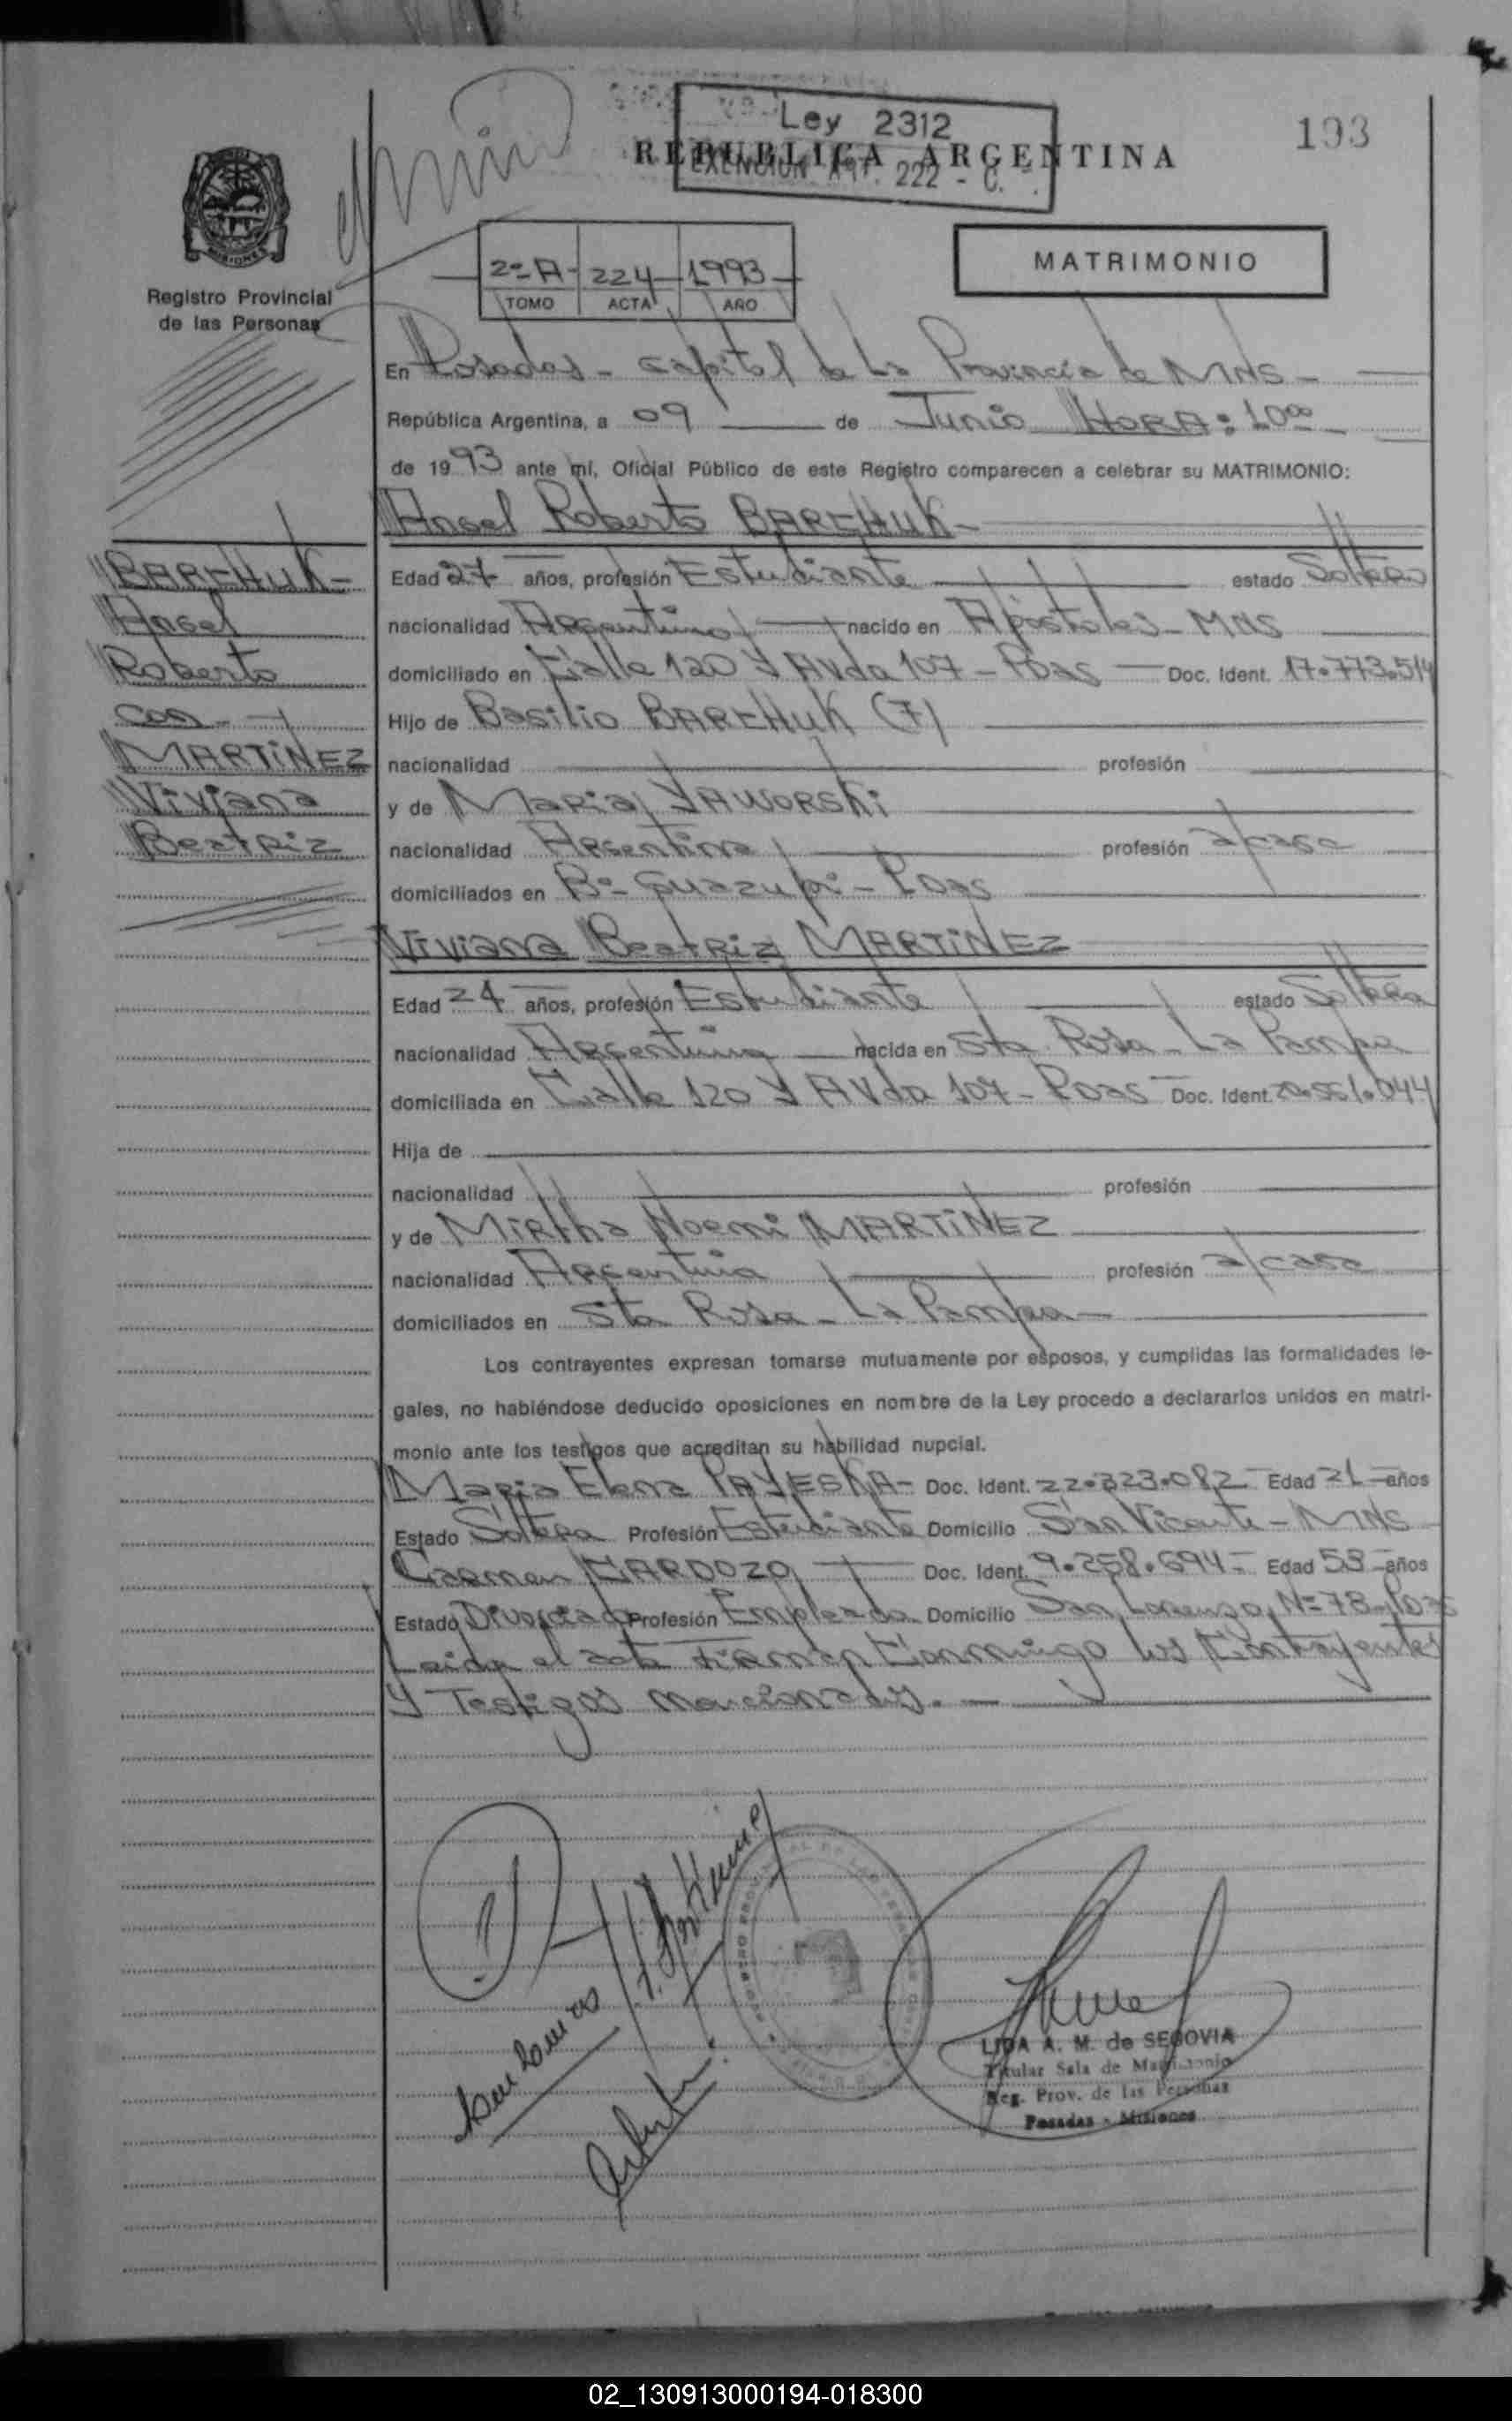 193
Ley 2312
REPUBLICA ARGENTINA
EXENCION ART. 222 - C.
MISIONES
Registro Provincial
de las Personas
2º A - 224 - 1993
TOMO ACTA AÑO
MATRIMONIO
En Posadas - Capital de La Provincia de MNS -
República Argentina, a 09 de Junio HORA: 10⁰⁰
de 1993 ante mí, Oficial Público de este Registro comparecen a celebrar su MATRIMONIO:
Angel Roberto BARCHUK -
BARCHUK -
Angel
Roberto
con -
MARTINEZ
Viviana
Beatriz
Edad 27 años, profesión Estudiante estado Soltero
nacionalidad Argentino nacido en Apóstoles - MNS
domiciliado en Calle 120 y AVda 107 - Pdas - Doc. Ident. 17.773.514
Hijo de Basilio BARCHUK (F)
nacionalidad profesión
y de Maria YAWORSKi
nacionalidad Argentina profesión a/casa
domiciliados en Bº Guazupi - Pdas
Viviana Beatriz MARTINEZ
Edad 24 años, profesión Estudiante estado Soltera
nacionalidad Argentina nacida en Sta Rosa - La Pampa
domiciliada en Calle 120 y AVda 107 - Pdas - Doc. Ident.
Hija de
nacionalidad profesión
y de Mirtha Noemi MARTINEZ
nacionalidad Argentina profesión a/casa
domiciliados en Sta Rosa - La Pampa -
Los contrayentes expresan tomarse mutuamente por esposos, y cumplidas las formalidades le-
gales, no habiéndose deducido oposiciones en nombre de la Ley procedo a declararlos unidos en matri-
monio ante los testigos que acreditan su habilidad nupcial.
Maria Elena PAYESKA - Doc. Ident. 22.323.082 - Edad 21 - años
Estado Soltera Profesión Estudiante Domicilio San Vicente - MNS
Carmen CARDOZO - Doc. Ident. 9.258.694 - Edad 53 - años
Estado Divorciada Profesión Empleada Domicilio San Lorenzo Nº 78 - Pdas
Leida el acta Firman Conmigo los Contrayentes
y Testigos mencionados. -
LIDA A. M. de SEGOVIA
Titular Sala de Matrimonio
Reg. Prov. de las Personas
Posadas - Misiones
02_130913000194-018300